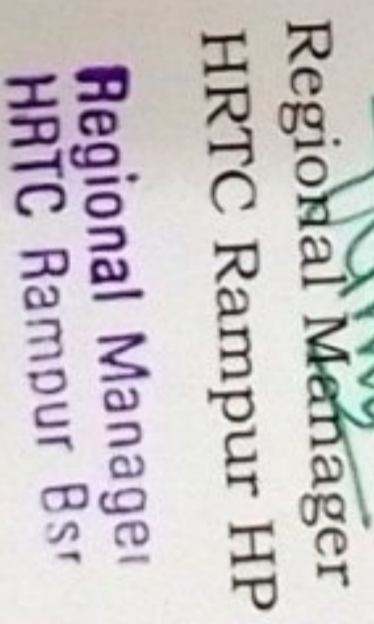 Regional Manager
HRTC Rampur HP
Regional Manager
HRTC Rampur Bsr